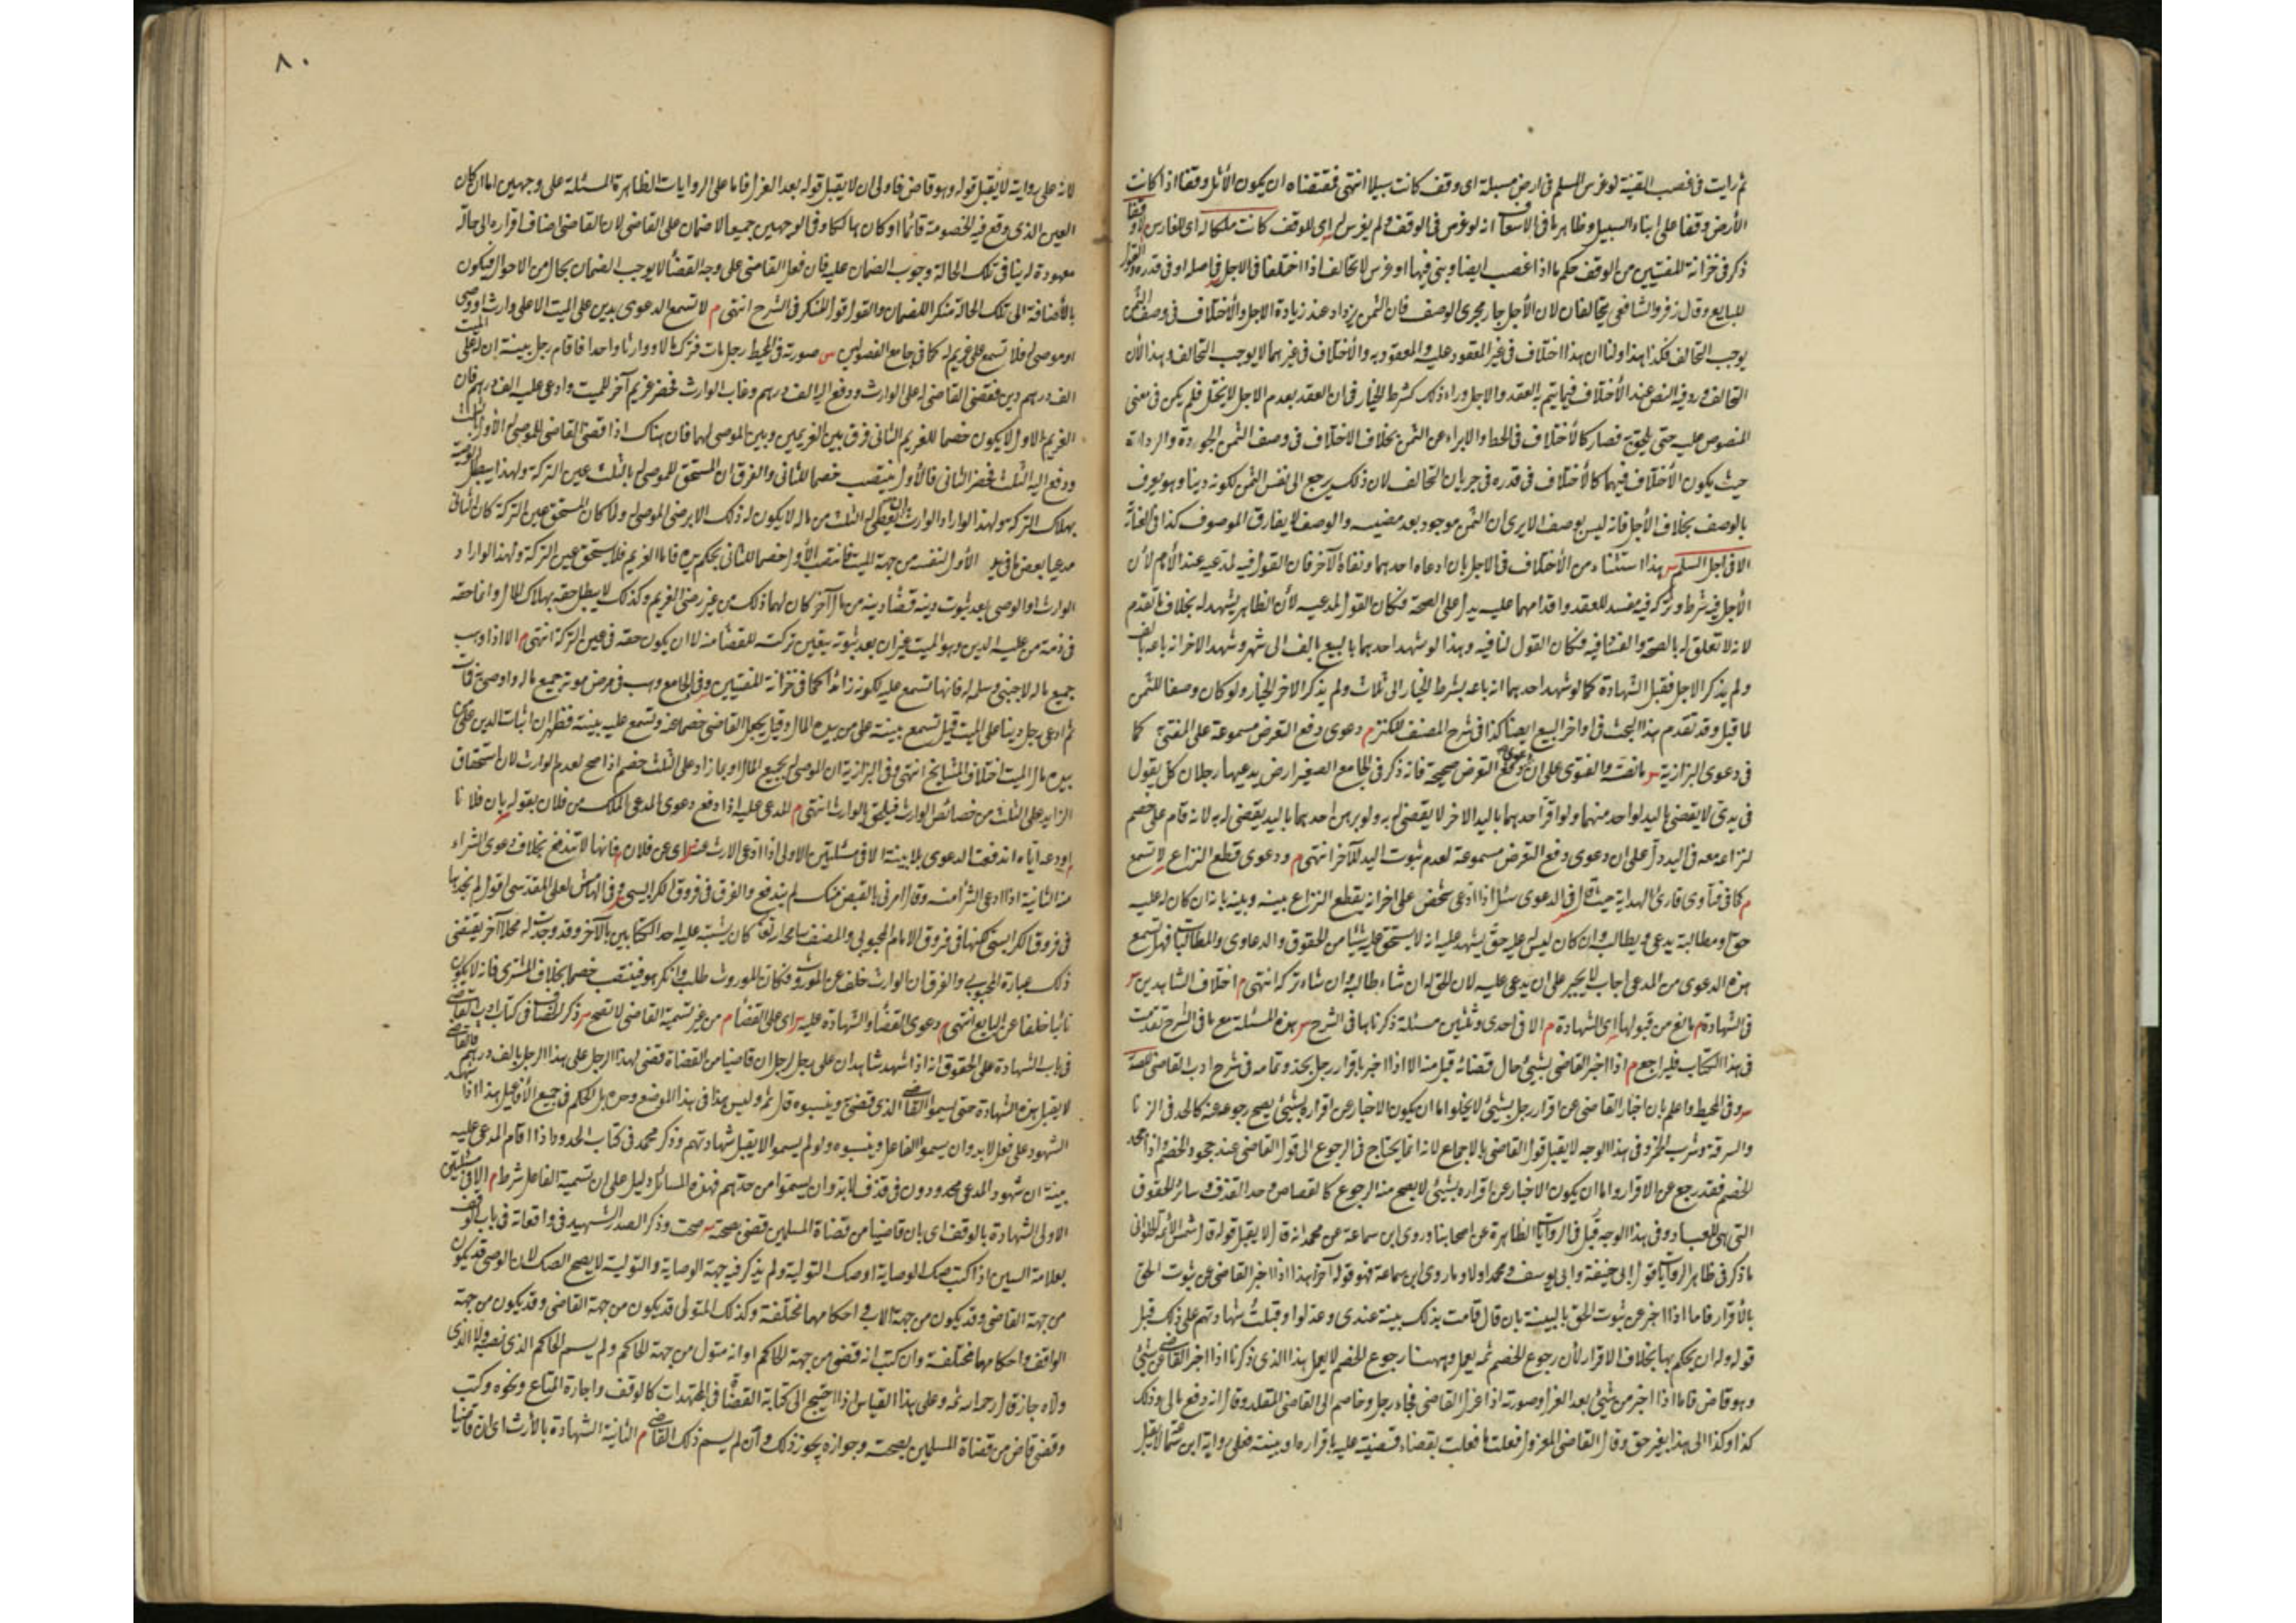 ثم رايت في غصب القنية لو غرس المسلم في ارض مسبلة اى وقف كانت سبيلا انتهى فمقتضاه ان يكون الأثل وقفا اذا كانت
الأرض وقفا على ابناء السبيل وظاهر ما في الاسعاف انه لو غرس في الوقف ولم يغرس له اى للوقف كانت ملكا له اى للغارس لا وقفا
ذكر في خزانة المفتيين من الوقف حكم ما اذا غصب ايضا وبنى فيها او غرس لا تحالف اذا اختلفا في الاجل في اصله او في قدره والقول
للبايع وقال زفر والشافعي يتحالفان لان الأجل جار مجرى الوصف فان الثمن يزداد عند زيادة الاجل والأختلاف في وصف الثمن
يوجب التحالف فكذا هذا ولنا ان هذا اختلاف في غير المعقود عليه والمعقود به والأختلاف في غيرهما لا يوجب التحالف وهذا لأن
التحالف ورد فيه النص عند الأختلاف فيما يتم به العقد والاجل وراء ذلك كشرط الخيار فان العقد بعدم الاجل لا يختل فلم يكن في معنى
المنصوص عليه حتى يلحق به فصار كالأختلاف في الحط والابراء عن الثمن بخلاف الاختلاف في وصف الثمن الجودة والرداءة
حيث يكون الأختلاف فيهما كالأختلاف في قدره في جريان التحالف لان ذلك يرجع الى نفس الثمن لكونه دينا وهو يعرف
بالوصف بخلاف الأجل فانه ليس بوصف الا يرى ان الثمن موجود بعد مضيه والوصف لا يفارق الموصوف كذا في
الا في اجل السلم س هذا استثناء من الأختلاف في الاجل بان ادعاه احدهما ونفاه الآخر فان القول فيه لمدعيه عند الأمام لأن
الأجل فيه شرط وتركه فيه مفسد للعقد واقدامهما عليه يدل على الصحة فكان القول لمدعيه لأن الظاهر يشهد له بخلاف ما تقدم
لانه لا تعلق له بالصحة والفساد فيه فكان القول لنافيه وهذا لو شهد احدهما بالبيع بالف الى شهر وشهد الاخر انه باعه بالف
ولم يذكر الاجل فقبل الشهادة كما لو شهد احدهما انه باعه بشرط الخيار الى ثلاث ولم يذكر الاخر الخيار ولو كان وصفا للثمن
لما قبل وقد تقدم هذا البحث في اواخر البيع ايضا كذا في شرح المصنف للكنز م دعوى دفع التعرض مسموعة على المفتى به كما
في دعوى البزازية س ما نصه والفتوى على ان دعوى دفع التعرض صحيحة فانه ذكر في الجامع الصغير ارض يدعيها رجلان كل يقول
في يدى لا يقضى باليد لواحد منهما ولو اقر احدهما باليد الاخر لا يقضى له به ولو برهن احدهما باليد يقضى له به لانه قام على خصم
لنزاعه معه في اليد دل على ان دعوى دفع التعرض مسموعة لعدم ثبوت اليد للآخر انتهى م ودعوى قطع النزاع لا تسمع
م كما في فتاوى قارئ الهداية حيث قال في الدعوى سئل اذا ادعى شخص على اخر انه يقطع النزاع بينه وبينه بانه ان كان له عليه
حق ومطالبة يدعى به ويطالب وان كان ليس له عليه حق يشهد عليه انه لا يستحق عليه شيئا من الحقوق والدعاوى والمطالبات فهل تسمع
هذه الدعوى من المدعى اجاب لا يجبر على ان يدعى عليه لان الحق له ان شاء طالبه وان شاء تركه انتهى م اختلاف الشاهدين س
في الشهادة م مانع من قبولها اى الشهادة م الا في احدى وثلثين مسئلة ذكرناها في الشرح س هذه المسئلة مع ما في الشرح تقدمت
في هذا الكتاب فليراجع م اذا اخبر القاضى بشئ حال قضائه قبل منه الا اذا اخبر باقرار رجل بحد وتمامه في شرح ادب القاضى للصدر
س وفي المحيط واعلم بان اخبار القاضى عن اقرار رجل بشئ لا يخلو اما ان يكون الاخبار عن اقراره بشئ يصح رجوعه عنه كالحد في الزنا
والسرقة وشرب الخمر وفي هذا الوجه لا يقبل قول القاضى بالاجماع لانه انما يحتاج في الرجوع الى قول القاضى عند جحود الخصم واذا جحد
الخصم فقد رجع عن الاقرار واما ان يكون الاخبار عن اقراره بشئ لا يصح منه الرجوع كالقصاص وحد القذف وسائر الحقوق
التى هى للعباد وفي هذا الوجه قبل في الروايات الظاهرة عن اصحابنا وروى ابن سماعة عن محمد انه قال لا يقبل قوله قال شمس الأئمة الحلوانى
ما ذكر في ظاهر الرواية قول ابى حنيفة وابى يوسف ومحمد اولا وما روى ابن سماعة فهو قوله آخرا هذا اذا اخبر القاضى عن ثبوت الحق
بالأقرار فاما اذا اخبر عن ثبوت الحق بالبينة بان قال قامت بذلك بينة عندى وعدلوا وقبلت شهادتهم على ذلك قبل
قوله وله ان يحكم بها بخلاف الاقرار لأن رجوع الخصم ثمه يعمل وههنا رجوع الخصم لا يعمل هذا الذى ذكرنا اذا اخبر القاضى عن شئ
وهو قاض فاما اذا اخبر من شئ بعد العزل وصورته اذا عزل القاضى فجاء رجل وخاصم الى القاضى المقلد وقال انه دفع مالى وذلك
كذا وكذا الى هذا بغير حق وقال القاضى المعزول فعلت ما فعلت بقضاء قضيته عليه باقراره او ببينة فعلى رواية ابن سماعة لا يقبل
٨٠
لانه على رواية لا يقبل قوله وهو قاض فاولى ان لا يقبل قوله بعد العزل فاما على الروايات الظاهرة المسئلة على وجهين اما ان كان
العين الذى وقع فيه الخصومة قائما او كان هالكا وفي الوجهين جميعا لا ضمان على القاضى لان القاضى اضاف اقراره الى حالة
معهودة له ينافى تلك الحالة وجوب الضمان عليه فان فعل القاضى على وجه القضأ لا يوجب الضمان بحال من الاحوال فيكون
بالأضافة الى تلك الحالة منكرا للضمان والقول قول المنكر في الشرح انتهى م لا تسمع الدعوى بدين على الميت الا على وارث او وصى
او موصى له فلا تسمع على غريم له كما في جامع الفصولين س صورته في المحيط رجل مات فترك مالا ووارثا واحدا فاقام رجل بينة ان له على الميت
الف درهم دين فقضى القاضى له على الوارث ودفع اليه الف درهم وغاب الوارث فحضر غريم آخر للميت وادعى عليه الف درهم فان
الغريم الاول لا يكون خصما للغريم الثانى فرق بين الغريمين وبين الموصى لهما فان هناك اذا قضى القاضى للموصى له الأول بالثلث
ودفع اليه الثلث فحضر الثانى فالأول ينتصب خصما للثانى والفرق ان المستحق للموصى له بالثلث عين التركة ولهذا يبطل الوصية
بهلاك التركة ولهذا لو اراد الوارث ان يعطى له الثلث من ماله لا يكون له ذلك الا برضى الموصى له ولما كان المستحق عين التركة كان الثانى
مدعيا بعض ما في يد الأول لنفسه من جهة الميت فانتصب الأول خصما للثانى بحكم يده فاما الغريم فلا يستحق عين التركة ولهذا لو اراد
الوارث او الوصى بعد ثبوت دينه قضأ دينه من مال آخر كان لهما ذلك من غير رضى الغريم وكذلك لا يبطل حقه بهلاك المال وانما حقه
في ذمة من عليه الدين وهو الميت غير ان بعد ثبوته يتعين تركته للقضأ منه لا ان يكون حقه في عين التركة انتهى م الا اذا وهب
جميع ماله لاجنبى وسلمه له فانها تسمع عليه لكونه زائدا كما في خزانة المفتيين وفي الجامع وهب في مرض موته جميع ماله او اوصى به فمات
ثم ادعى رجل دينا على الميت قيل تسمع بينة على من بيده المال وقيل يجعل القاضى خصما عنه وتسمع عليه بينته فظهر ان اثبات الدين على من
بيده مال الميت اختلاف المشايخ انتهى وفي البزازية ان الموصى له بجميع المال او بما زاد على الثلث خصم اذا صح لعدم الوارث لان استحقاق
الزايد على الثلث من خصائص الوارث فيلحق بالوارث انتهى م المدعى عليه اذا دفع دعوى المدعى الملك من فلان بقوله بان فلانا
اودعه اياه اندفعت الدعوى بلا بينة الا في مسئلتين الاولى اذا ادعى الارث عنه س اى عن فلان م فانها لا تندفع بخلاف دعوى الشراء
منه الثانية اذا ادعى الشرأ منه وقال امرنى بالقبض منك لم يندفع والفرق في فروق الكرابيسى س وفي الهامش لعلى المقدسى اقول لم نجدها
في فروق الكرابيسى لكنها في فروق الامام المحبوبى والمصنف سامحه الله تعالى كان يشتبه عليه احد الكتابين بالآخر وقد وجدت له محلا آخر يقتضى
ذلك عبارة المحبوبى والفرق ان الوارث خلف عن المورث فكان المورث طلب وانكر هو فينتصب خصما بخلاف المشترى فانه لا يكون
نائبا خلفا عن البايع انتهى م دعوى القضأ والشهادة عليه س اى على القضأ م من غير تسمية القاضى لا تصح س ذكر الخصاف في كتاب ادب القاضى
في باب الشهادة على الحقوق انه اذا شهد شاهدان على رجل لرجل ان قاضيا من القضاة قضى لهذا الرجل على هذا الرجل بالف درهم فالقاضى
لا يقبل هذه الشهادة حتى يسموا القاضى الذى قضى به وينسبوه قال ثم وليس هذا في هذا الموضع وحده بل الحكم في جميع الأفاعيل هذا اذا شهد
الشهود على فعل لا بد وان يسموا الفاعل وينسبوه ولو لم يسموا لا يقبل شهادتهم وذكر محمد في كتاب الحدود اذا اقام المدعى عليه
بينة ان شهود المدعى محدودون في قذف لا بد وان يسموا من حدهم فهذه المسائل دليل على ان تسمية الفاعل شرط م الا في مسئلتين
الاولى الشهادة بالوقف اى بان قاضيا من قضاة المسلمين قضى بصحته س صحت وذكر الصدر الشهيد في واقعاته في باب الوقف
بعلامة السين اذا كتب صك الوصاية او صك التولية ولم يذكر فيه جهة الوصاية والتولية لا يصح الصك لان الوصى قد يكون
من جهة القاضى وقد يكون من جهة الاب و احكامهما مختلفة وكذلك المتولى قد يكون من جهة القاضى وقد يكون من جهة
الواقف واحكامهما مختلفة وان كتب انه قضى من جهة الحاكم او انه متول من جهة الحاكم ولم يسم الحاكم الذى نصبه ولا الذى
ولاه جاز قال رحمه الله ثمه وعلى هذا القياس اذا احتيج الى كتابة القضأ في المجتهدات كالوقف واجارة المتاع ونحوه وكتب
وقضى قاض من قضاة المسلمين بصحته وجوازه يجوز ذلك وان لم يسم ذلك القاضى م الثانية الشهادة بالأرث اى ان قاضيا